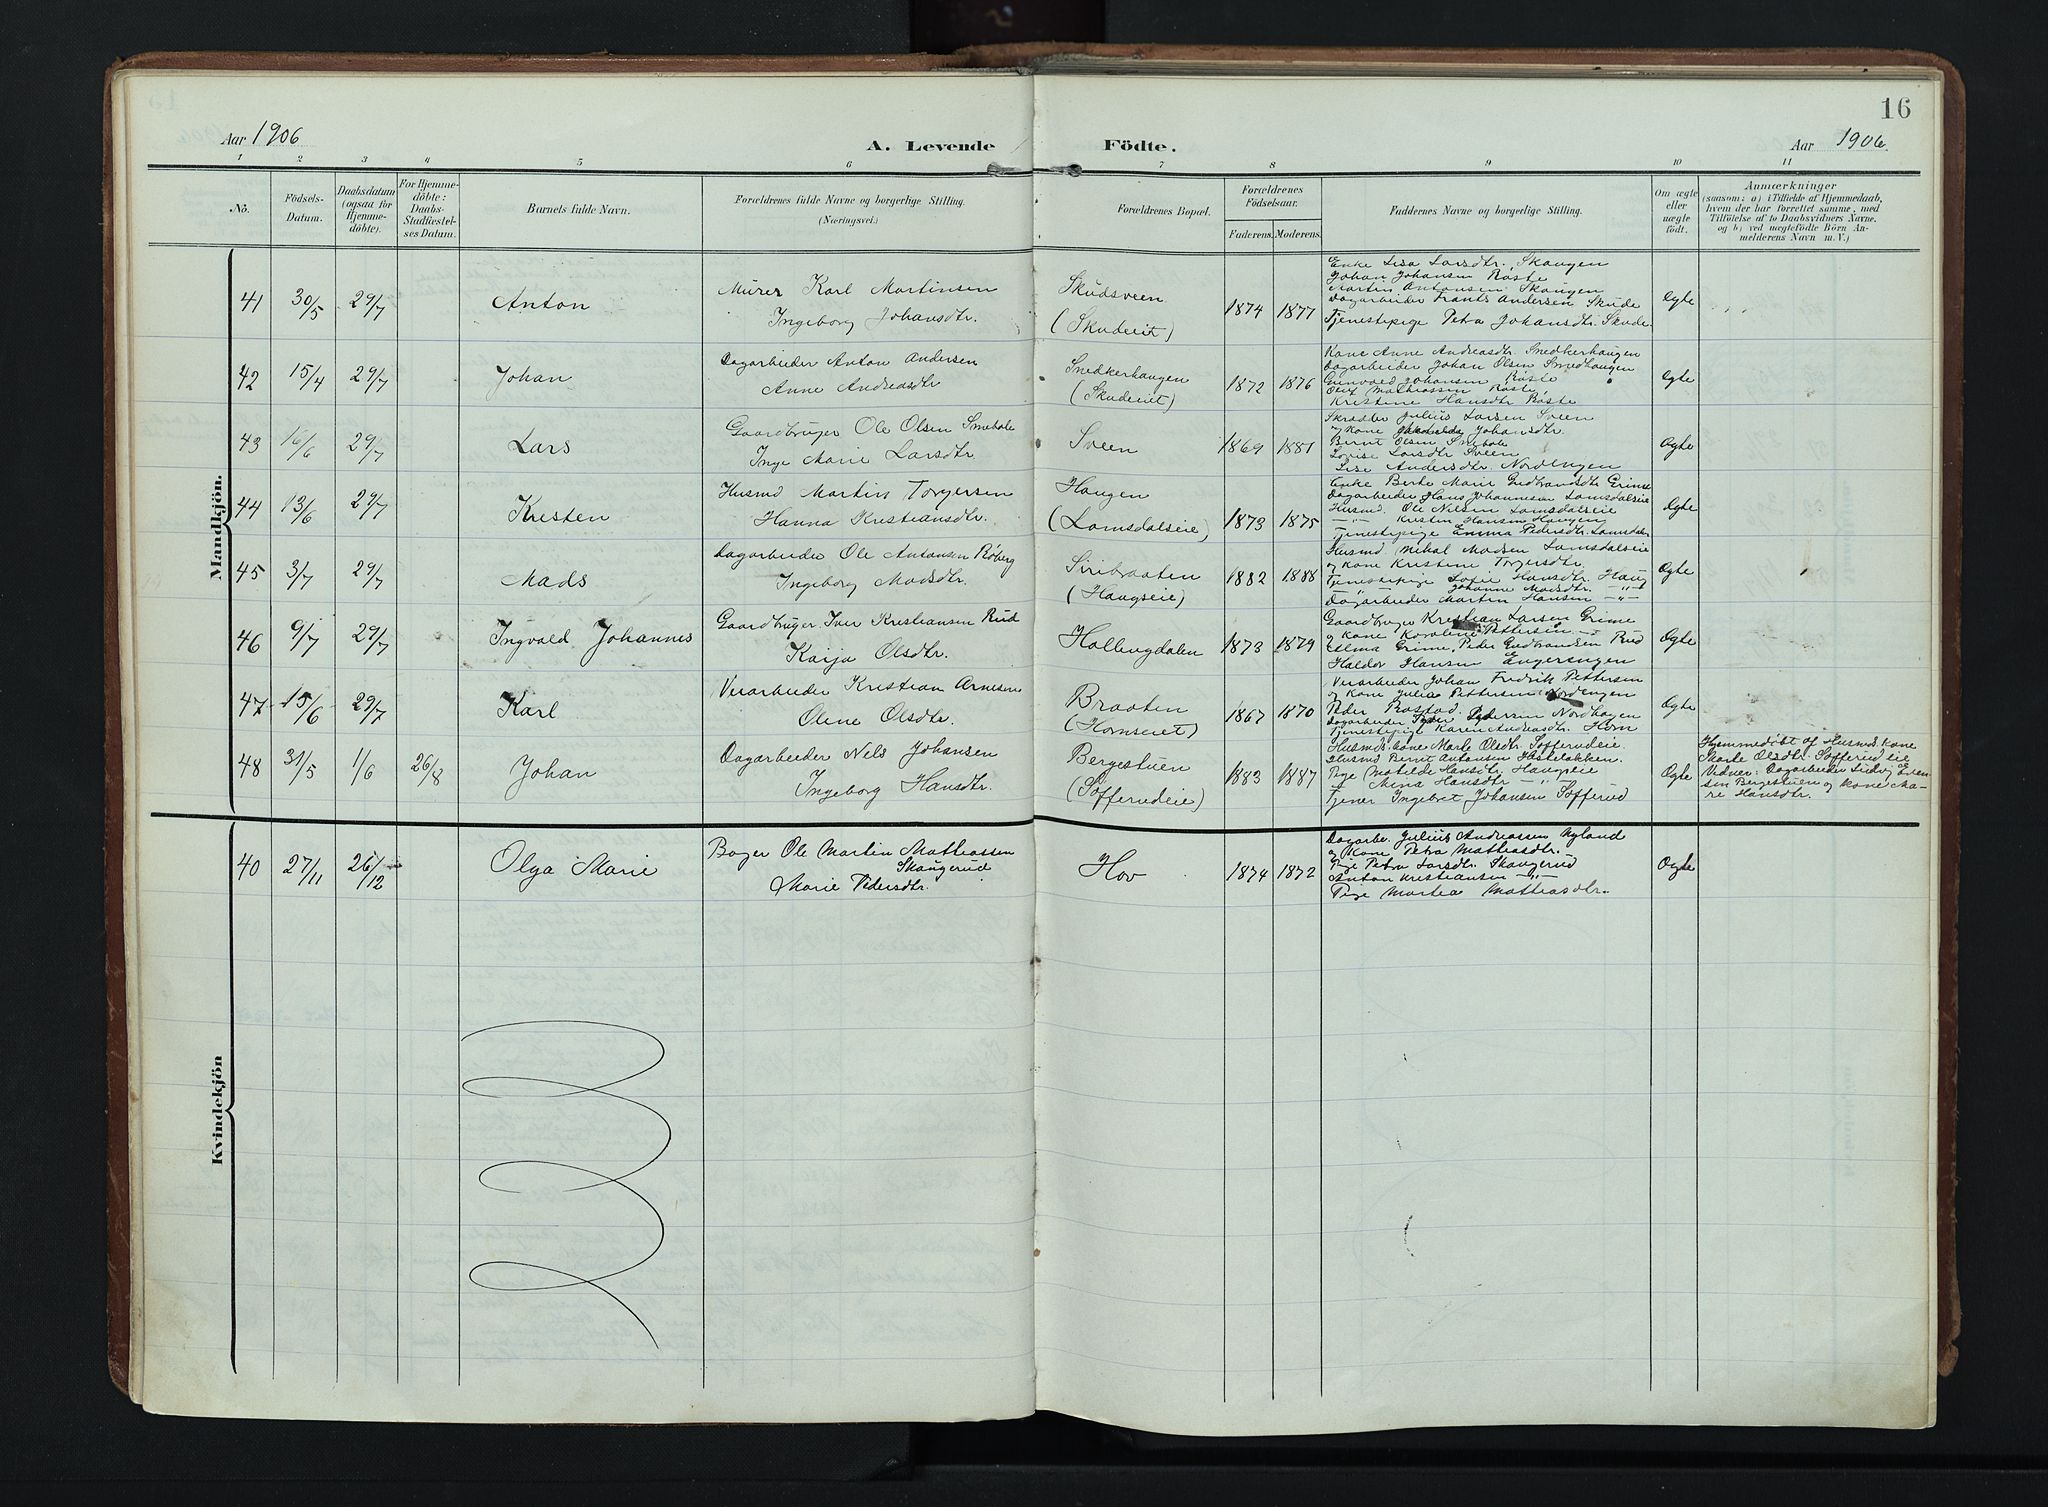 16
Aar 1906
A. Levende
Födte.
Aar 1906.
1 2 3 4 5 6 7 8 9 10 11
No.
Födsels-Datum.
Daabsdatum (ogsaa for Hjemmedöbte).
For Hjemmedöbte: Daabs-Stadfæstelses Datum.
Barnets fulde Navn.
Forældrenes fulde Navne og borgerlige Stilling.
(Næringsvei.)
Forældrenes Bopæl.
Forældrenes Födselsaar.
Faderens. Moderens.
Faddernes Navne og borgerlige Stilling.
Om ægte eller uægte födt.
Anmærkninger
(saasom: a) i Tilfælde af Hjemmedaab,
hvem der har forrettet samme, med
Tilföielse af to Daabsvidners Navne,
og b) ved uægtefödte Börn An-
melderens Navn m. V.)
Mandkjön.
41 30/5 29/7 Anton
Murer Karl Martinsen
Ingeborg Johansdtr.
Skudsveen
(Skudeiet)
1874 1877
Enke Lisa Larsdtr. Skaugen
Johan Johansen Røste
Martin Antonsen Skaugen
Dagarbeider Frants Andersen Skude
Tjenestepige Petra Johansdtr. Skude
Ogte
42 15/4 29/7 Johan
Dagarbeider Anton Andersen
Anne Andreasdtr
Snedkerhaugen
(Skudeiet)
1872 1876
Kone Anne Andreasdtr. Snedkerhaugen
Dagarbeider Johan Olsen Snedhaugen
Gunvald Johansen Røste
Olaf Mathiassen Røste
Kristine Hansdtr Røste
Ogte
43 16/6 29/7 Lars
Gaardbruger Ole Olsen Smebole
Inge Marie Larsdtr.
Sveen
1869 1881
Skrædder Julius Larsen Sveen
og kone Johansdtr.
Bernt Olsen Smebole
Lovise Larsdtr Sveen
Lise Andersdtr. Nordengen
Ogte
44 13/6 29/7 Kristen
Husmd Martin Torgersen
Hanna Kristiansdtr.
Haugen
(Lomsdalseie)
1873 1875
Enke Berte Marie Gudbrandsdtr Grime
Dagarbeider Hans Johannesen Lomsdalseie
Husmd. Ole Nilsen Lomsdalseie
—"— Kristen Hansen Haugen
Tjenestepige Emma Pedersdtr. Lomsdalen
Ogte
45 3/7 29/7 Mads
Dagarbeider Ole Antonsen Røberg
Ingeborg Madsdtr.
Siribraaten
(Haugseie)
1882 1888
Husmd Mikal Madsen Lomsdalseie
og kone Kristine Torgersdtr.
Tjenestepige Sofie Hansdtr. Haug
—"— Johanne Madsdtr. —"—
Dagarbeider Martin Hansen —"—
Ogte
46 9/7 29/7 Ingvald Johannes
Gaardbruger Iver Kristiansen Rud
Kaija Olsdtr.
Hallingdalen
1873 1879
Gaardbruger Kristian Larsen Grime
og kone Karoline Pettersen —"—
Elma Grime, Peder Gudbrandsen Rud
Haldor Hansen Engerengen
Ogte
47 15/6 29/7 Karl
Veiarbeider Kristian Arnesen
Oline Olsdtr.
Braaten
(Hornseiet)
1867 1870
Veiarbeider Johan Fredrik Pettersen
og kone Julia Pettersen Nordengen
Peder Rostad.
Dagarbeider Peder Pedersen Nordhagen
Tjenestepige Karen Andreasdtr. Horn
Ogte
48 31/5 1/6 26/8 Johan
Dagarbeider Nels Johansen
Ingeborg Hansdtr.
Bergestuen
(Sofferudeie)
1883 1887
Husmds. kone Marte Olsdtr. Sofferudeie.
Husmd Bernt Antonsen Hasteløkken.
Pige Matilde Hansdtr. Haugseie
" Mina Hansdtr —"—
Tjener Ingebret Johansen Sofferud
Ogte
Hjemmedøbt af Husmd. kone
Marte Olsdtr. Sofferud eie
Vidner: Dagarbeider Ludvig Even-
sen Bergestuen og kone Ma-
re Hansdtr.
Kvindekjön
40 27/11 26/12 Olga Marie
Bager Ole Martin Mathiassen
Skaugerud
Marie Pedersdtr.
Hov
1874 1872
Dagarbe. Julius Andreassen Nyland
og Kone Petra Mathiasdtr.
Pige Petra Larsdtr. Skaugerud
Anton Kristiansen —"—
Pige Martea Mathiasdtr.
Ogte